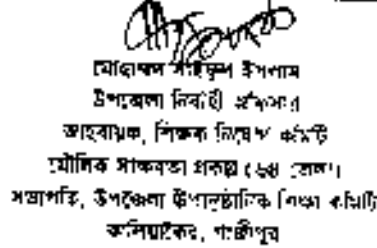 মোহাম্মদ সাইফুল ইসলাম
উপজেলা নির্বাহী অফিসার
আহবায়ক, শিক্ষক নিয়োগ কমিটি
মৌলিক সাক্ষরতা প্রকল্প (৬৪ জেলা)
সভাপতি, উপজেলা উপানুষ্ঠানিক শিক্ষা কমিটি
কালিয়াকৈর, গাজীপুর